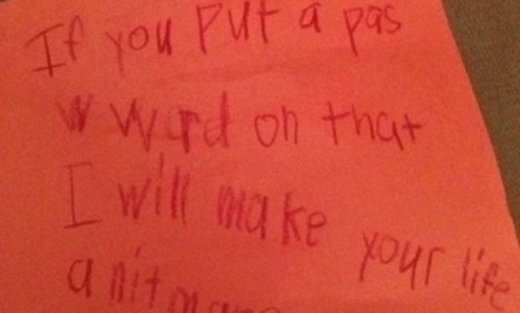 If you put a pas
w ward on that
I will make your life
a nit